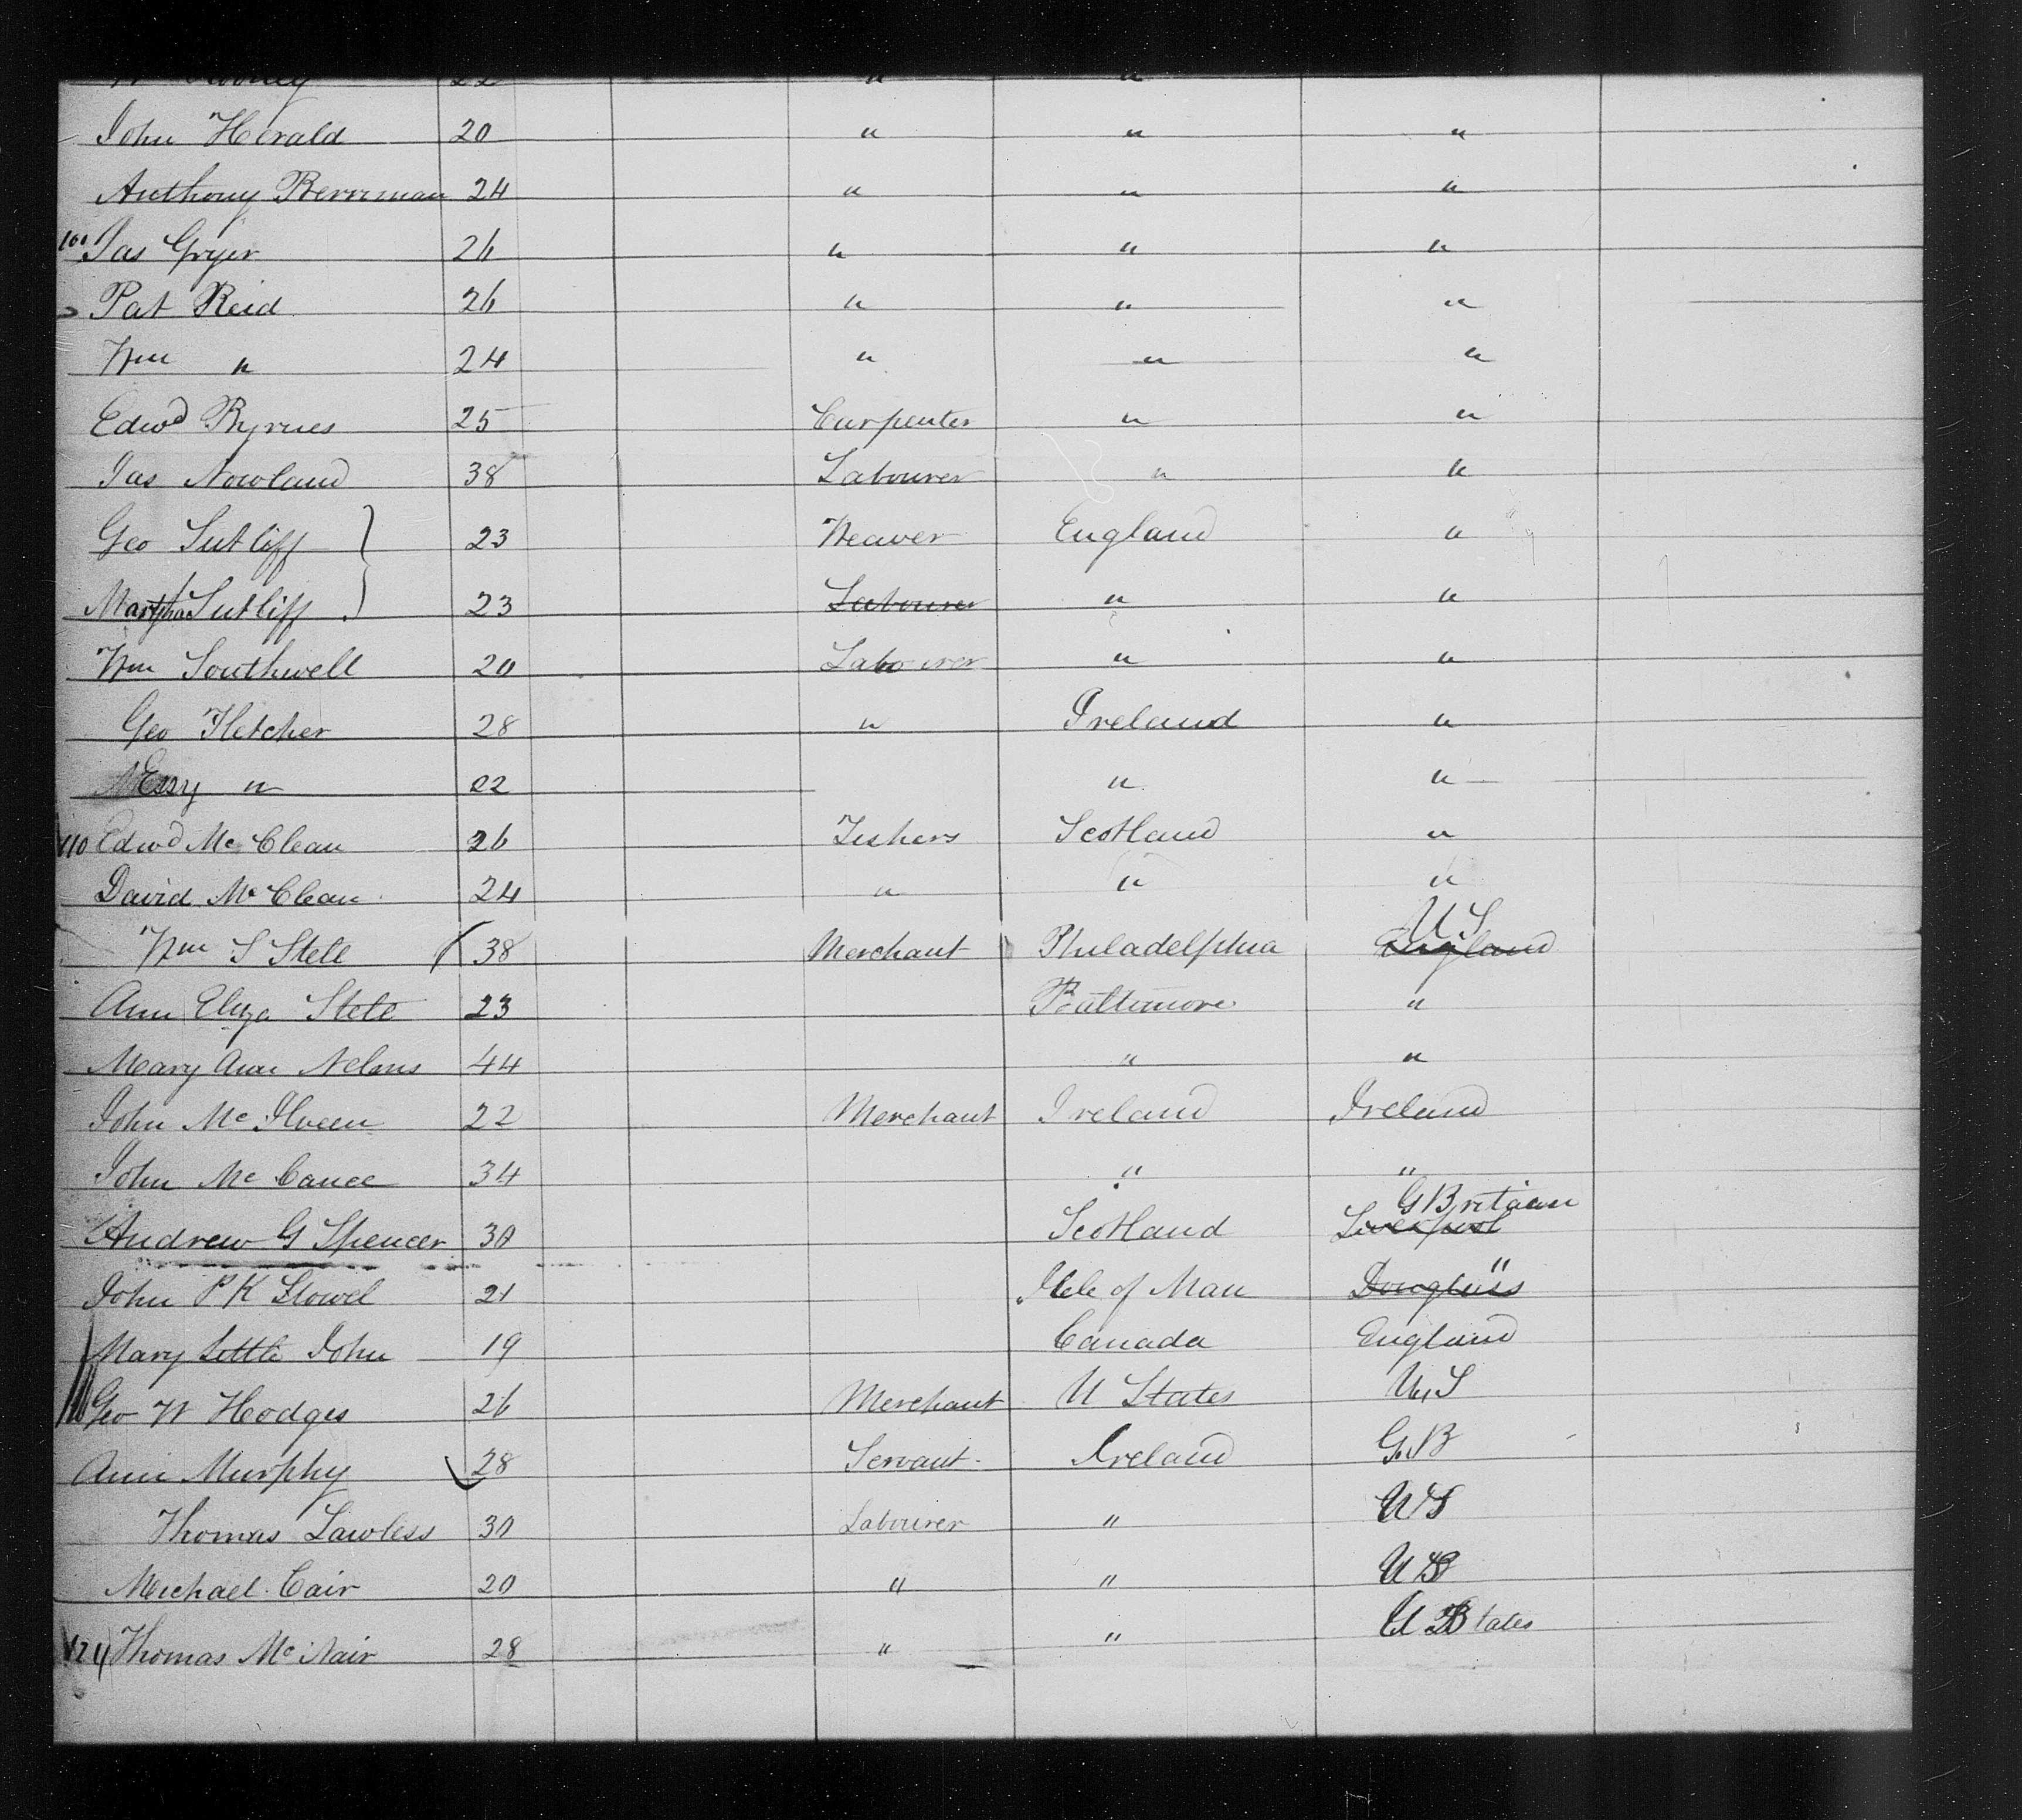 22 " "
John Herald 20 " " "
Anthony Berriman 24 " " "
100 Jas Gryer 26 " " "
Pat Reid 26 " " "
Wm " 24 " " "
Edwd Byrnes 25 Carpenter " "
Jas Nowland 38 Labourer " "
Geo Sutliff 23 Weaver England "
Martha Sutliff 23 Labourer " "
Wm Southwell 20 Labourer " "
Geo Fletcher 28 " Ireland "
Essy " 22 " "
110 Edwd McClean 26 Fishers Scotland "
David McClean 24 " " "
U S
Wm S Stell 38 Merchant Philadelphia England
Ann Eliza Stell 23 Baltimore "
Mary Ann 44 " "
John McIlveen 22 Merchant Ireland Ireland
John McCance 34 " "
G Britain
Andrew G Spencer 30 Scotland Liverpool
John P K Stowel 21 Isle of Man Douglass "
Mary Little John 19 Canada England
Geo W Hodges 26 Merchant U States U.S
Ann Murphy 28 Servant Ireland G.B
Thomas Lawless 30 Labourer " U S
Michael Cair 20 " " U S
124 Thomas McNair 28 " " U States